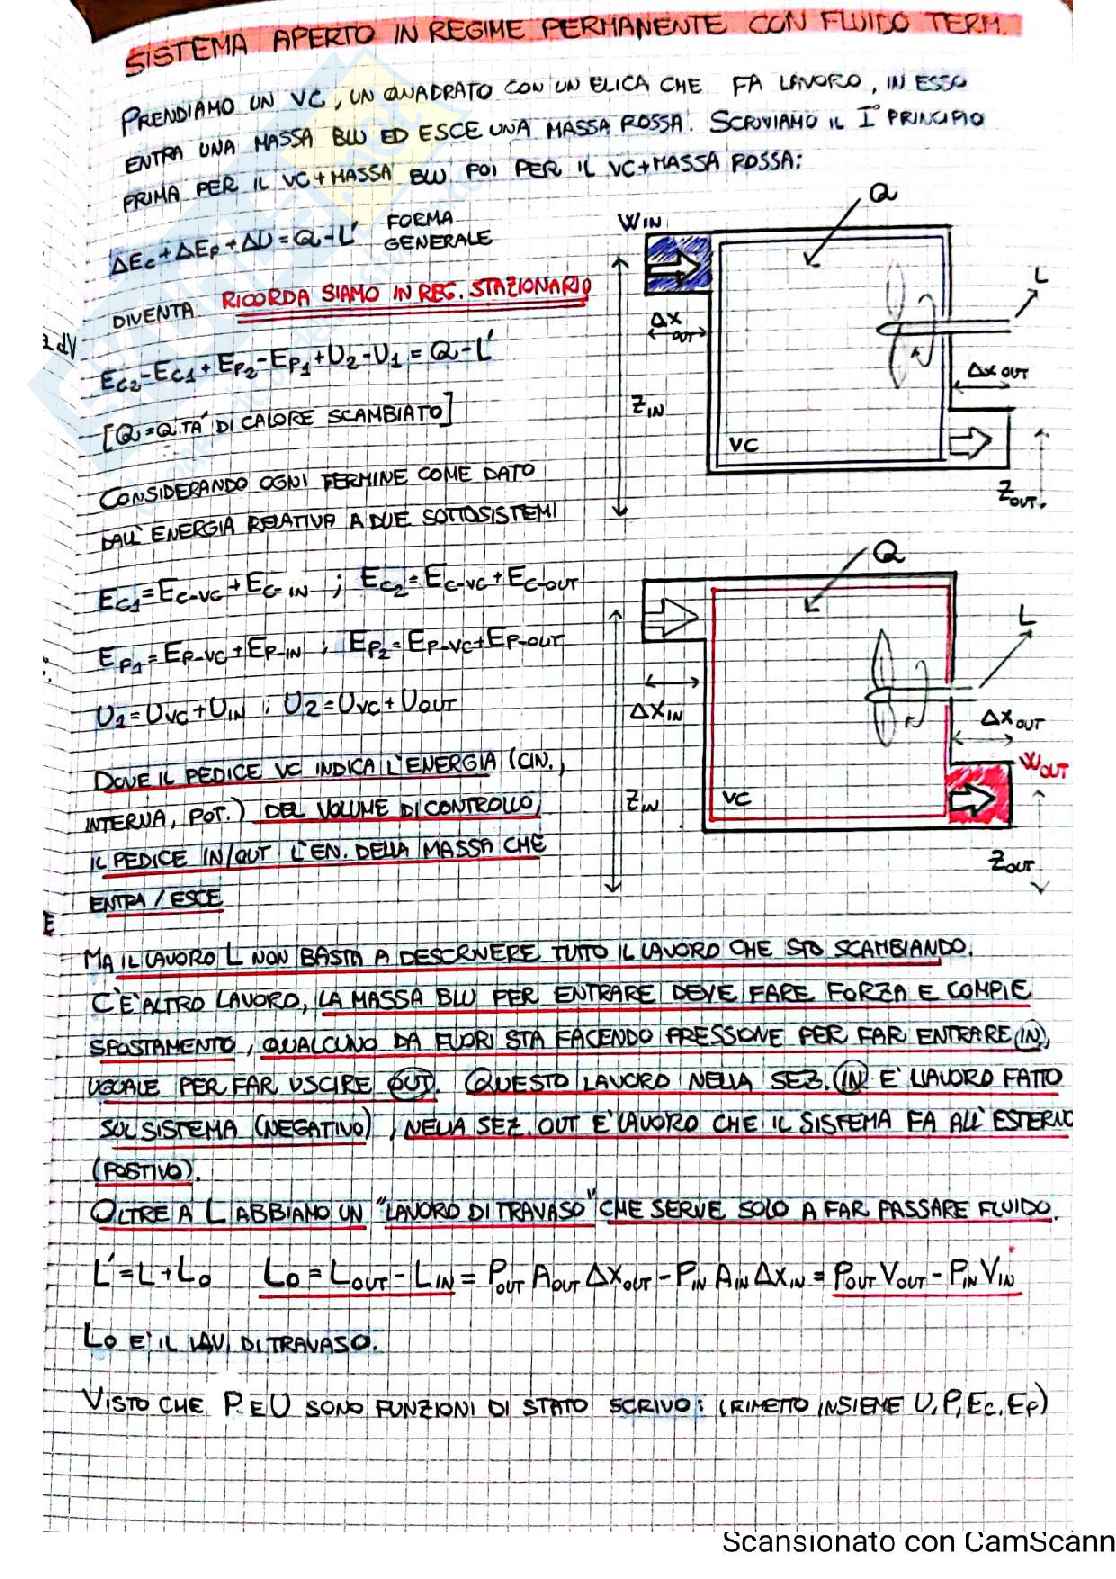 SISTEMA APERTO IN REGIME PERMANENTE CON FLUIDO TERM.
PRENDIAMO UN VC, UN QUADRATO CON UN ELICA CHE FA LAVORO, IN ESSO
ENTRA UNA MASSA BLU ED ESCE UNA MASSA ROSSA. SCRIVIAMO IL I° PRINCIPIO
PRIMA PER IL VC+MASSA BLU POI PER IL VC+MASSA ROSSA:
ΔEc+ΔEp+ΔU=Q-L' FORMA
GENERALE
DIVENTA RICORDA SIAMO IN REG. STAZIONARIO
Ec2-Ec1+Ep2-Ep1+U2-U1=Q-L'
[Q=Q.TA' DI CALORE SCAMBIATO]
CONSIDERANDO OGNI TERMINE COME DATO
DALL'ENERGIA RELATIVA A DUE SOTTOSISTEMI
Ec1=Ec-vc+Ec-IN ; Ec2=Ec-vc+Ec-OUT
Ep1=Ep-vc+Ep-IN ; Ep2=Ep-vc+Ep-OUT
U1=Uvc+UIN ; U2=Uvc+UOUT
DOVE IL PEDICE VC INDICA L'ENERGIA (CIN.,
INTERNA, POT.) DEL VOLUME DI CONTROLLO,
IL PEDICE IN/OUT L'EN. DELLA MASSA CHE
ENTRA/ESCE
WIN
Q
L
ΔX OUT
ΔX OUT
ZIN
VC
ZOUT.
Q
L
ΔXIN
ΔXOUT
WOUT
ZIN
VC
ZOUT
MA IL LAVORO L NON BASTA A DESCRIVERE TUTTO IL LAVORO CHE STO SCAMBIANDO.
C'È ALTRO LAVORO, LA MASSA BLU PER ENTRARE DEVE FARE FORZA E COMPIE
SPOSTAMENTO, QUALCUNO DA FUORI STA FACENDO PRESSIONE PER FAR ENTRARE (IN),
UGUALE PER FAR USCIRE OUT. QUESTO LAVORO NELLA SEZ. IN E' LAVORO FATTO
SUL SISTEMA (NEGATIVO), NELLA SEZ. OUT E' LAVORO CHE IL SISTEMA FA ALL'ESTERNO
(POSTIVO).
OLTRE A L ABBIAMO UN "LAVORO DI TRAVASO" CHE SERVE SOLO A FAR PASSARE FLUIDO.
L'=L+Lo Lo=LOUT-LIN=POUT AOUT ΔXOUT-PIN AIN ΔXIN=POUT VOUT-PIN VIN
Lo E' IL LAV. DI TRAVASO.
VISTO CHE P E U SONO FUNZIONI DI STATO SCRIVO: (RIMETTO INSIEME U,P,Ec,Ep)
Scansionato con CamScann